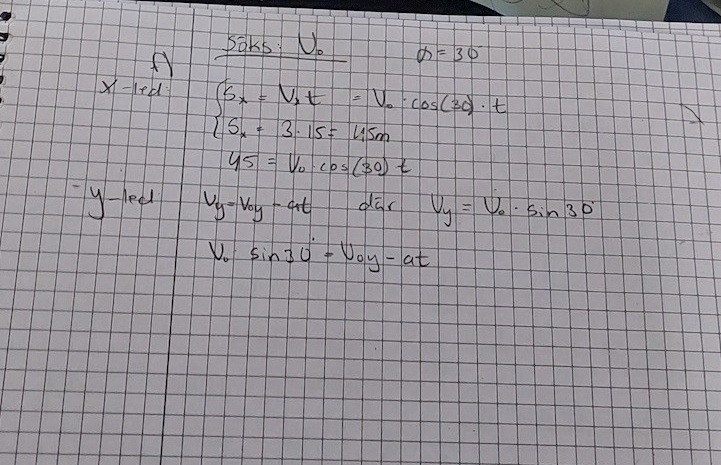 Söks: V₀ α = 30°
f)
x-led: { Sₓ = Vₓ t = V₀ · cos(30) · t
{ Sₓ = 3 · 15 = 45m
45 = V₀ cos(30) t
y-led Vy = V₀y - at där Vy = V₀ · sin 30°
V₀ · sin 30° = V₀y - at